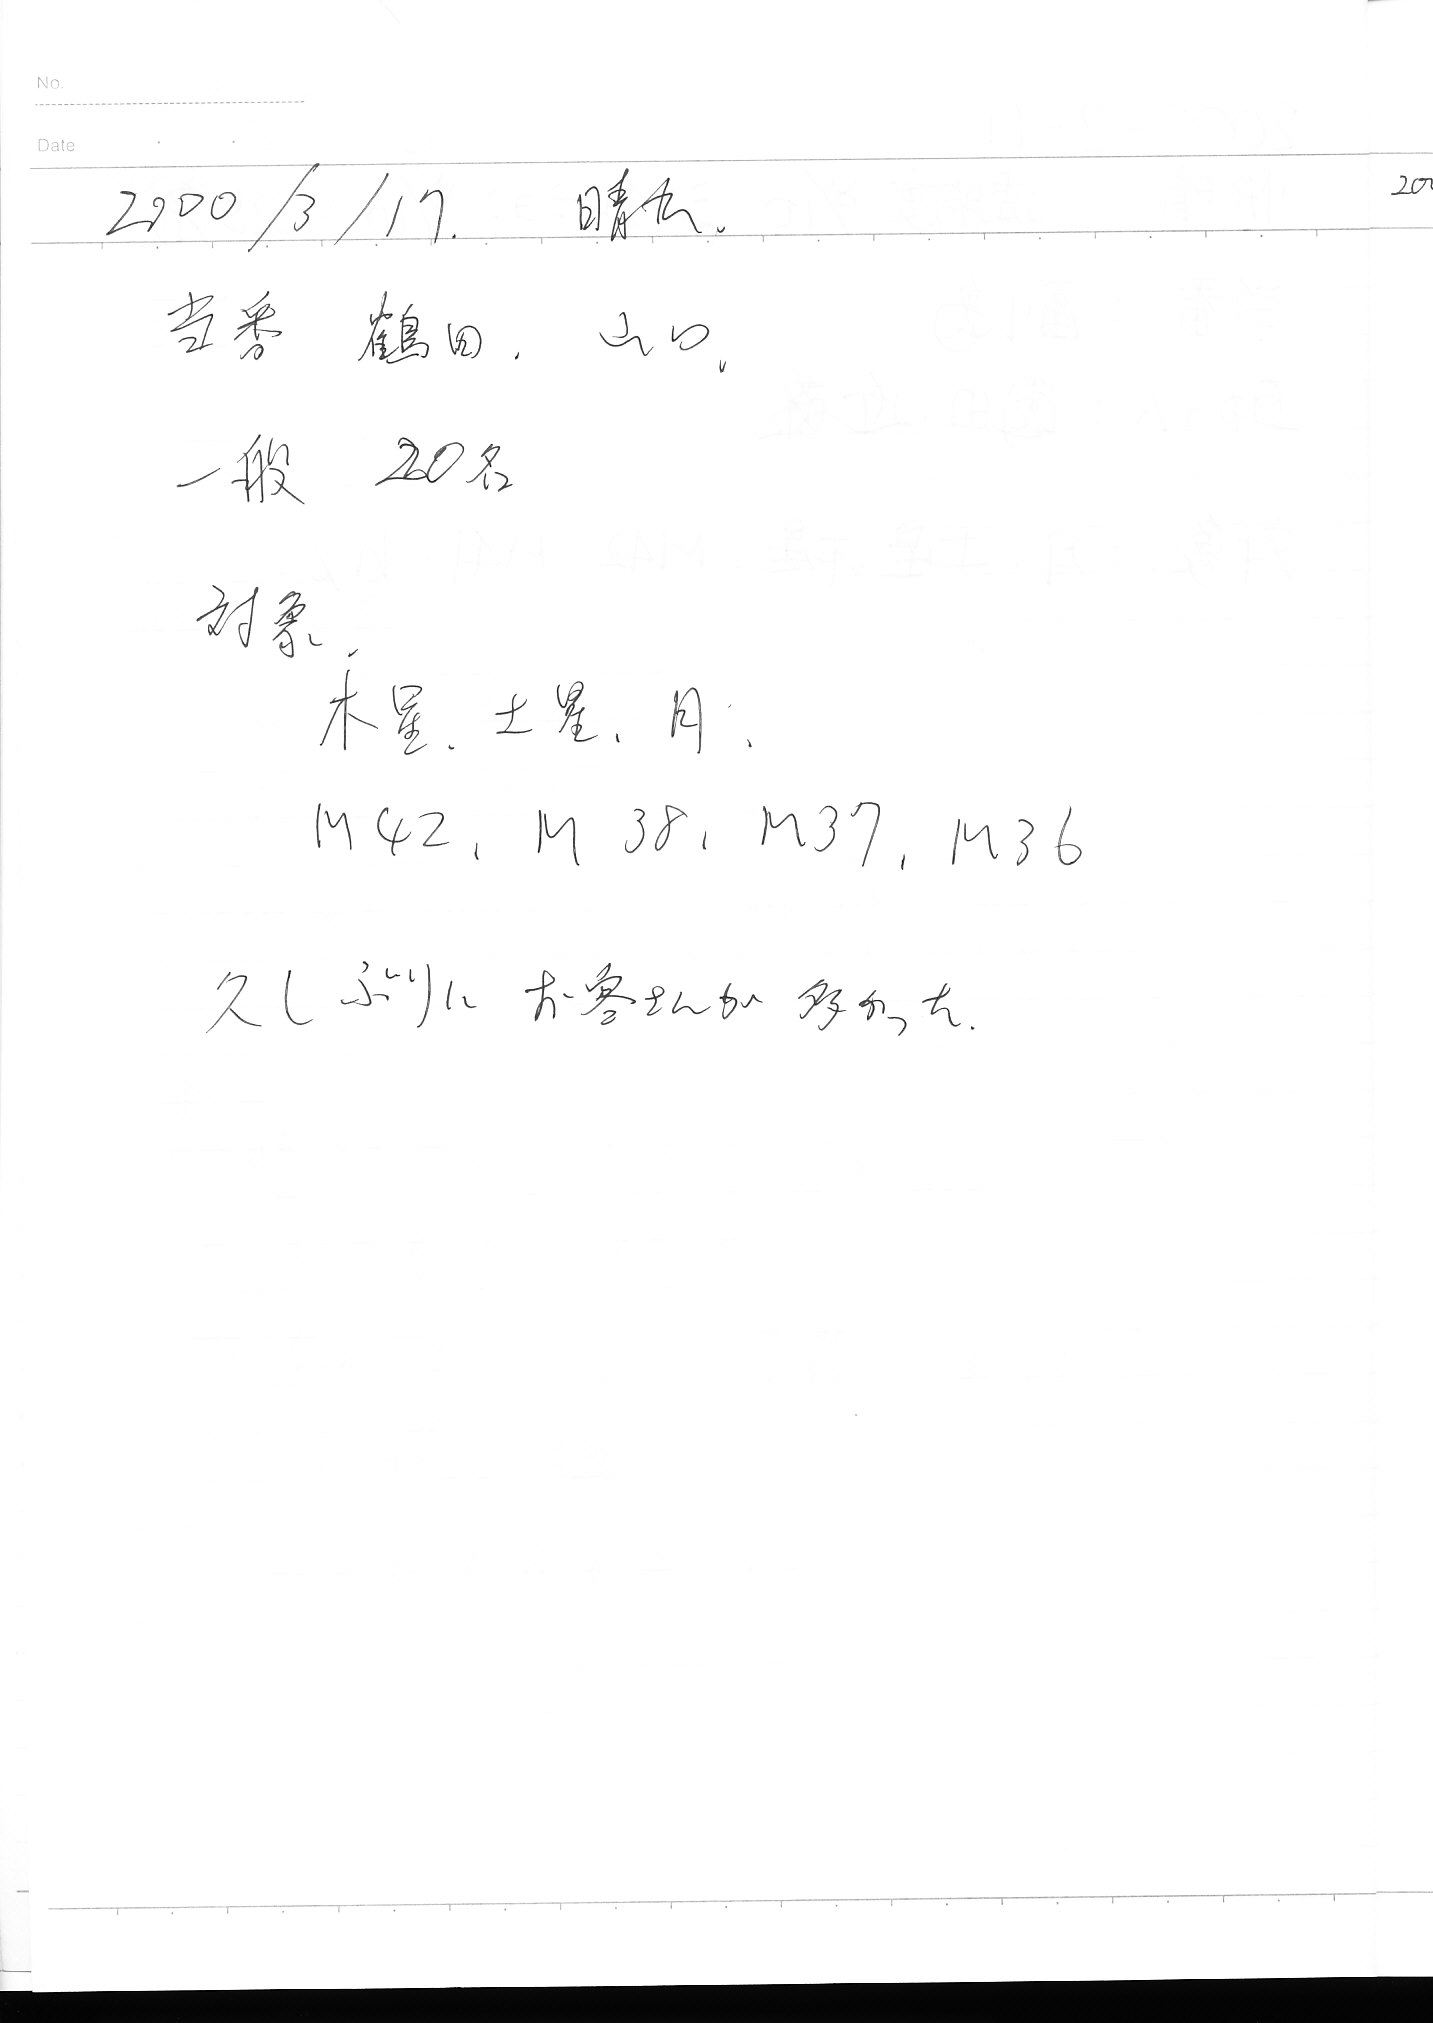 No.
Date
2000/3/17. 晴れ.
200
当番 鶴田. 山口.
一般 20名
対象.
木星. 土星. 月.
M42, M38, M37, M36
久しぶりに お客さんが 多かった.